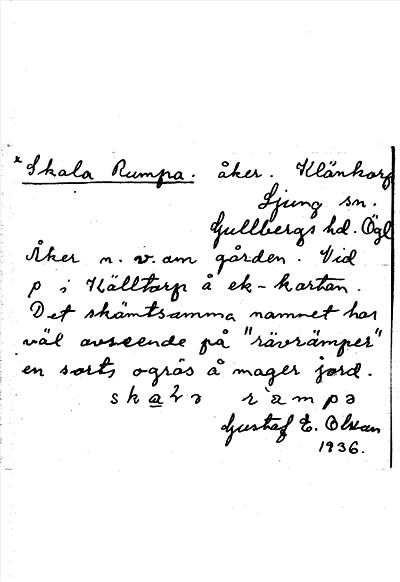 x Skala Rumpa. åker. Klänkorp
Ljung sn.
Gullbergs hd. Ögl
Åker n. v. om gården. Vid
p i Källtorp å ek-kartan.
Det skämtsamma namnet har
väl avseende på "rävrämper"
en sorts ogräs å mager jord.
Gustaf E. Olsson
1936.